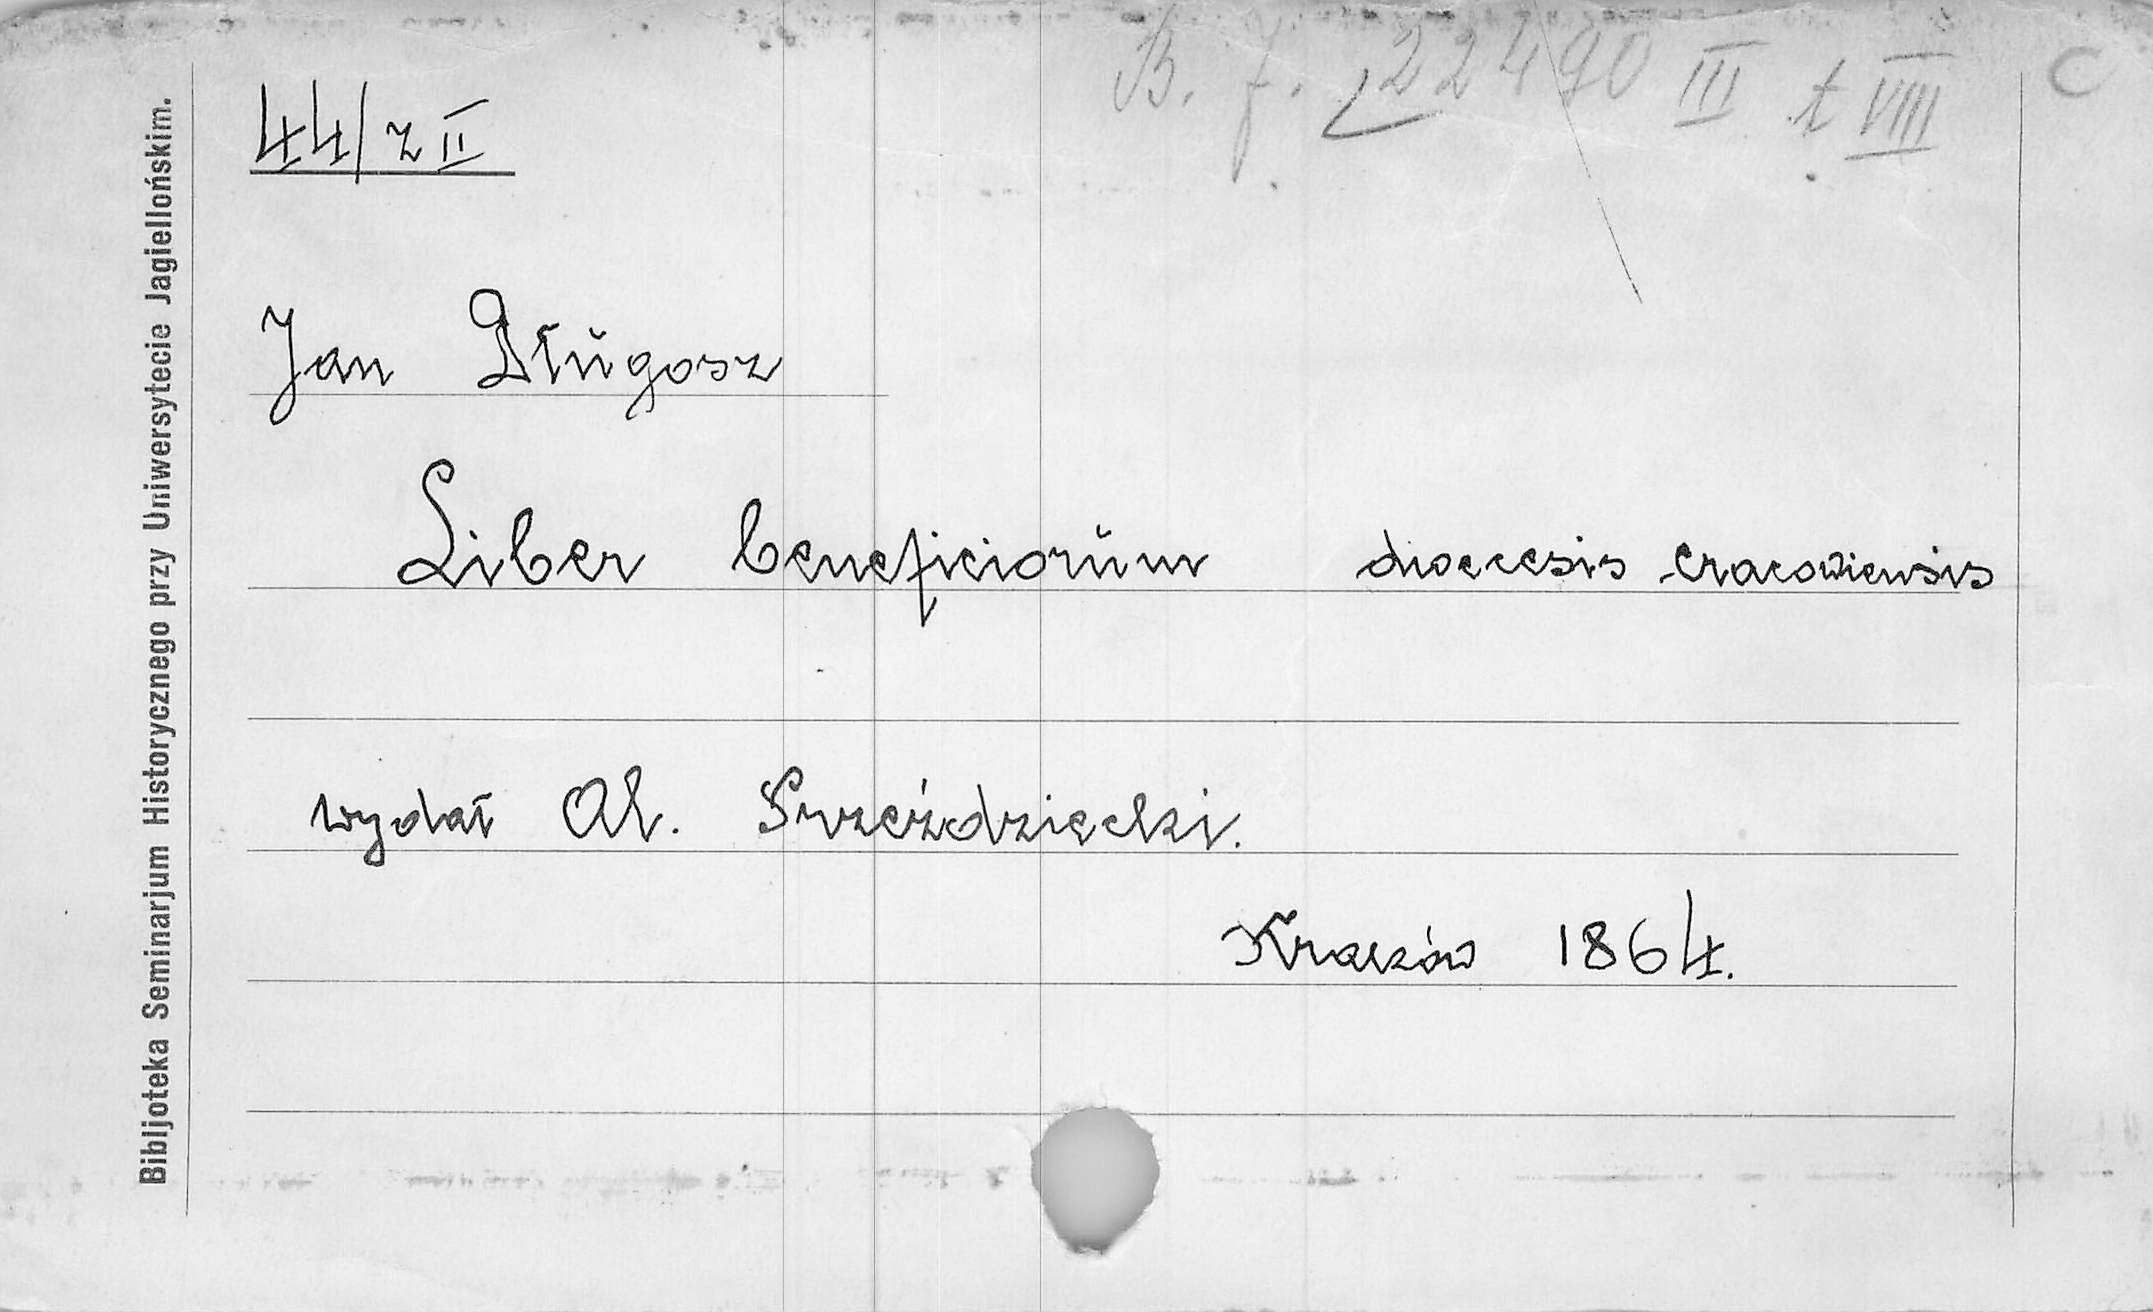 B. j. 22490 III t VIII C
44/z II
Jan Długosz
Liber beneficiorŭm dioecesis Cracowiensis
wydał Al. Przeździecki.
Kraków 1864.
Bibljoteka Seminarjum Historycznego przy Uniwersytecie Jagiellońskim.